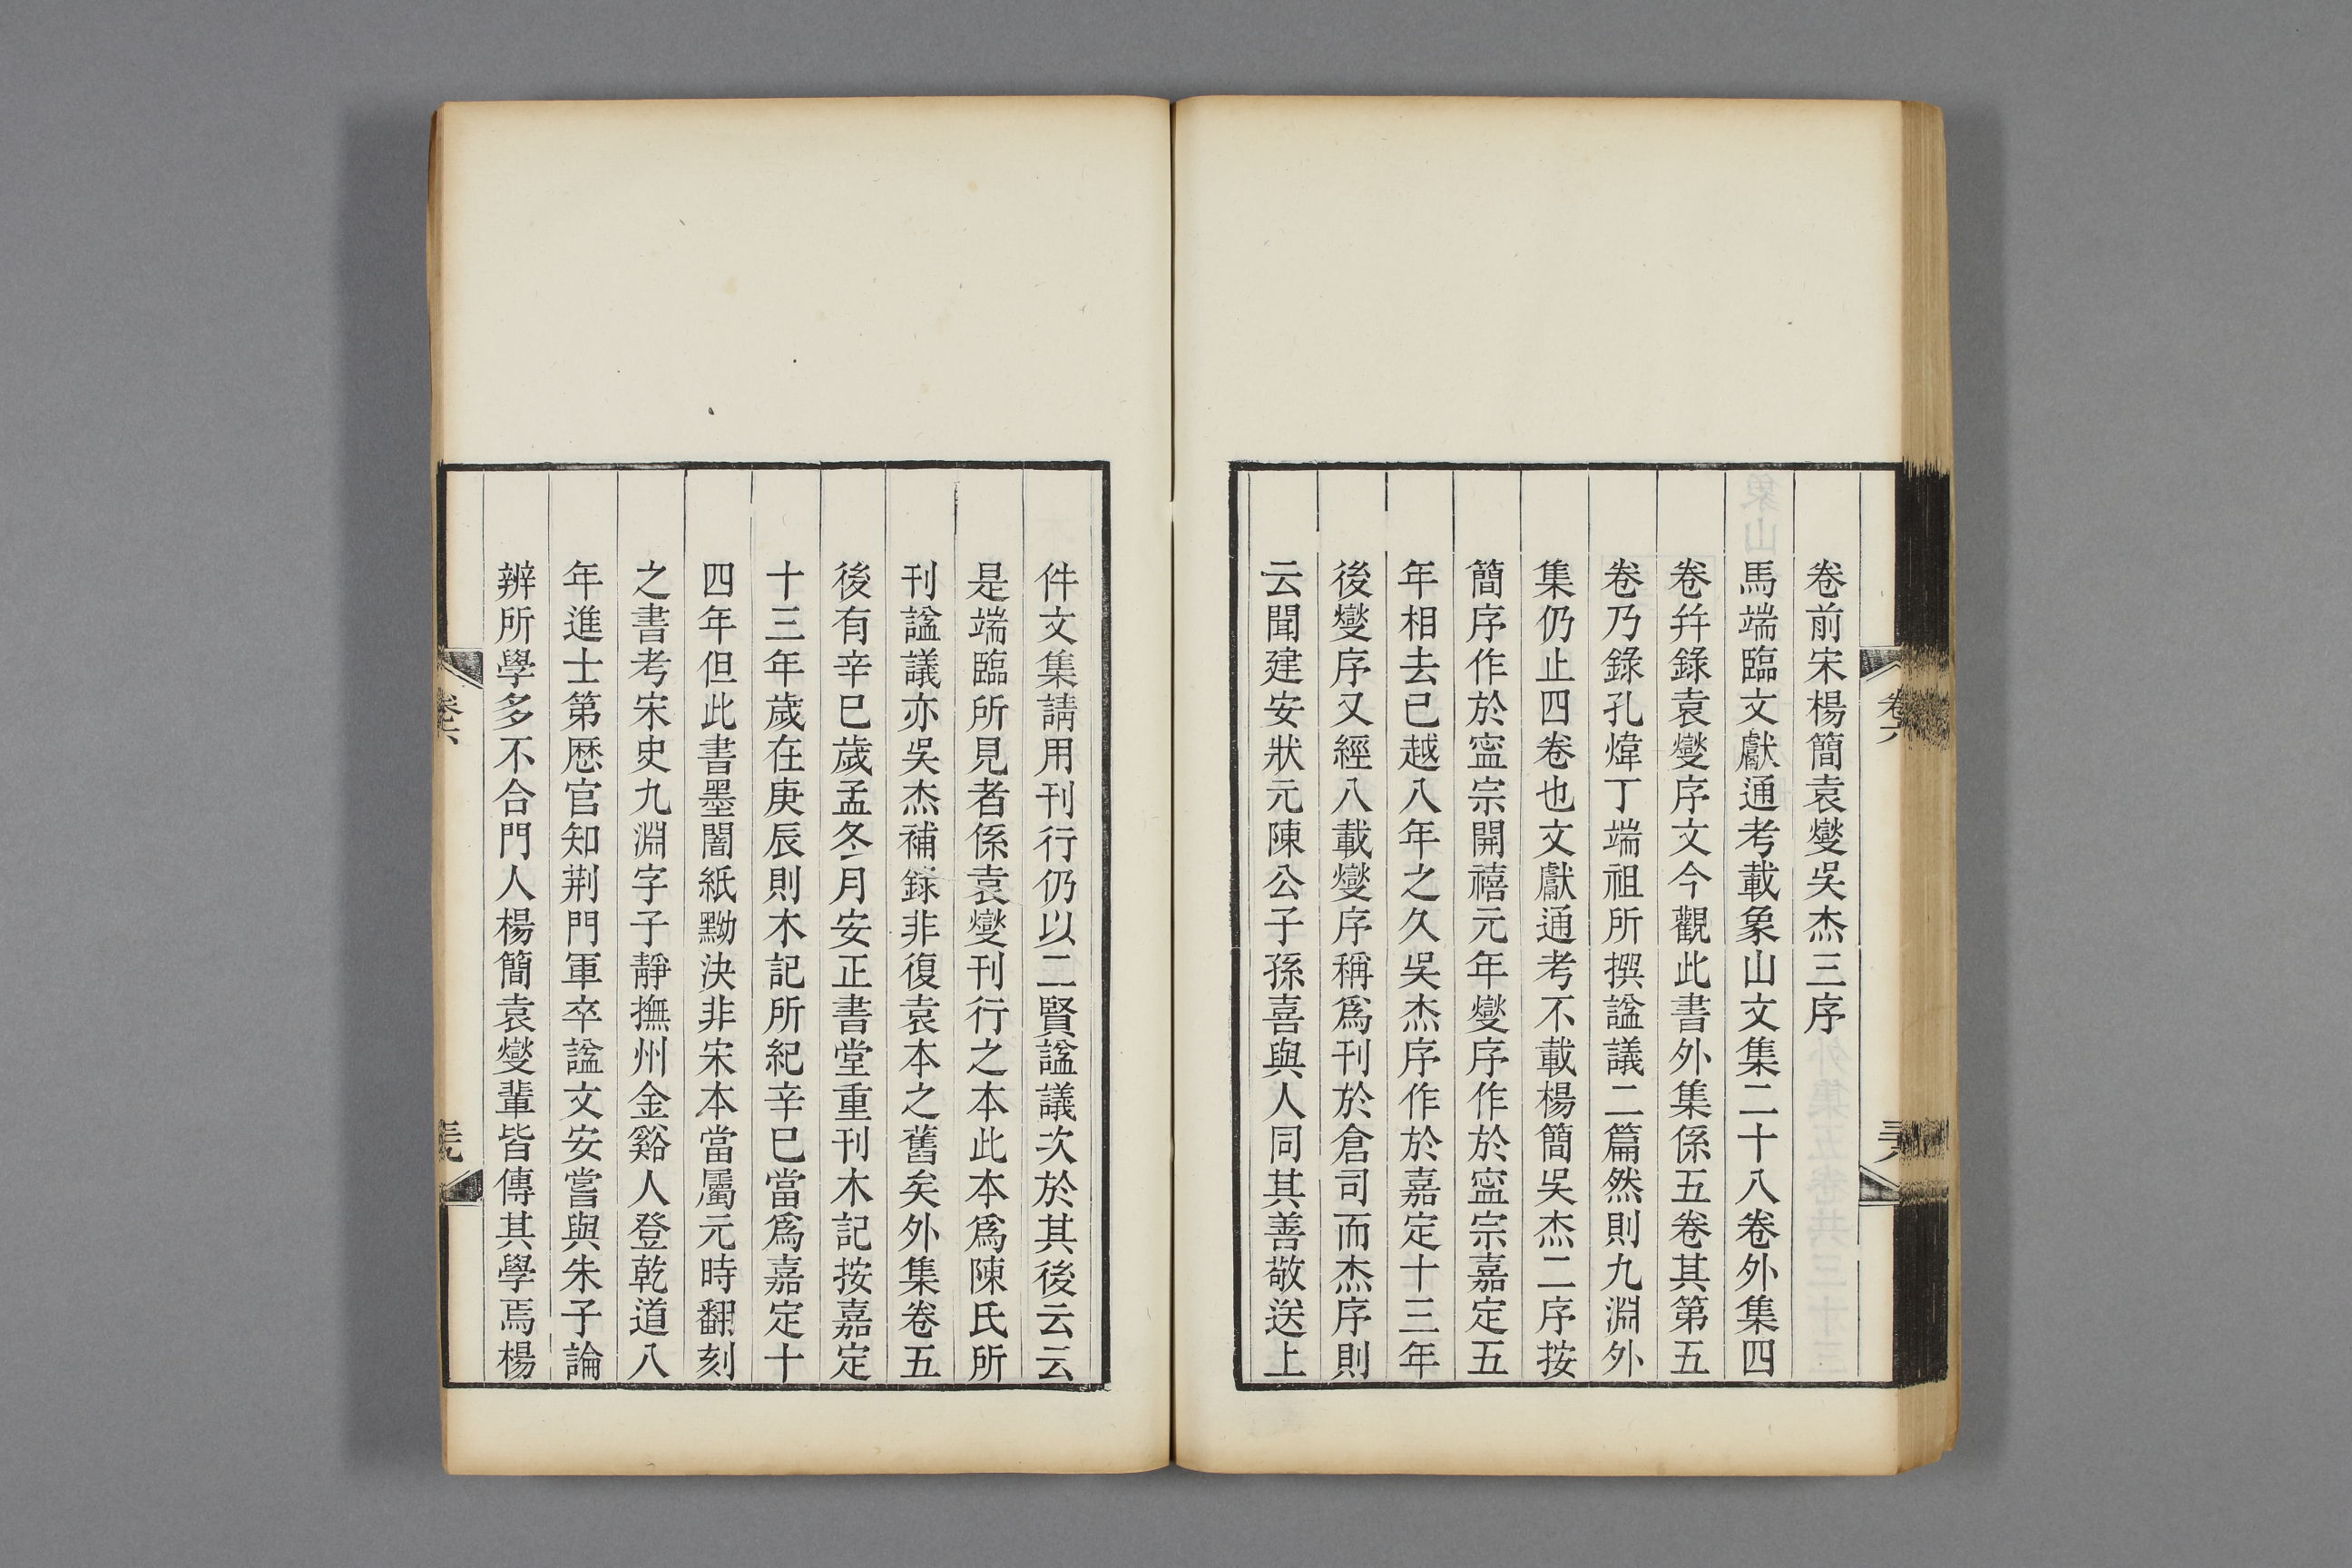 卷前宋楊簡袁燮吳杰三序
馬端臨文獻通考載象山文集二十八卷外集四
卷幷錄袁燮序文今觀此書外集係五卷其第五
卷乃錄孔煒丁端祖所撰謚議二篇然則九淵外
集仍止四卷也文獻通考不載楊簡吳杰二序按
簡序作於寍宗開禧元年燮序作於寍宗嘉定五
年相去已越八年之久吳杰序作於嘉定十三年
後燮序又經八載燮序稱爲刊於倉司而杰序則
云聞建安狀元陳公子孫喜與人同其善敬送上
件文集請用刊行仍以二賢謚議次於其後云云
是端臨所見者係袁燮刊行之本此本爲陳氏所
刊謚議亦吳杰補錄非復袁本之舊矣外集卷五
後有辛巳歲孟冬月安正書堂重刊木記按嘉定
十三年歲在庚辰則木記所紀辛巳當爲嘉定十
四年但此書墨闇紙黝決非宋本當屬元時翻刻
之書考宋史九淵字子靜撫州金谿人登乾道八
年進士第厯官知荆門軍卒謚文安嘗與朱子論
辨所學多不合門人楊簡袁燮輩皆傳其學焉楊